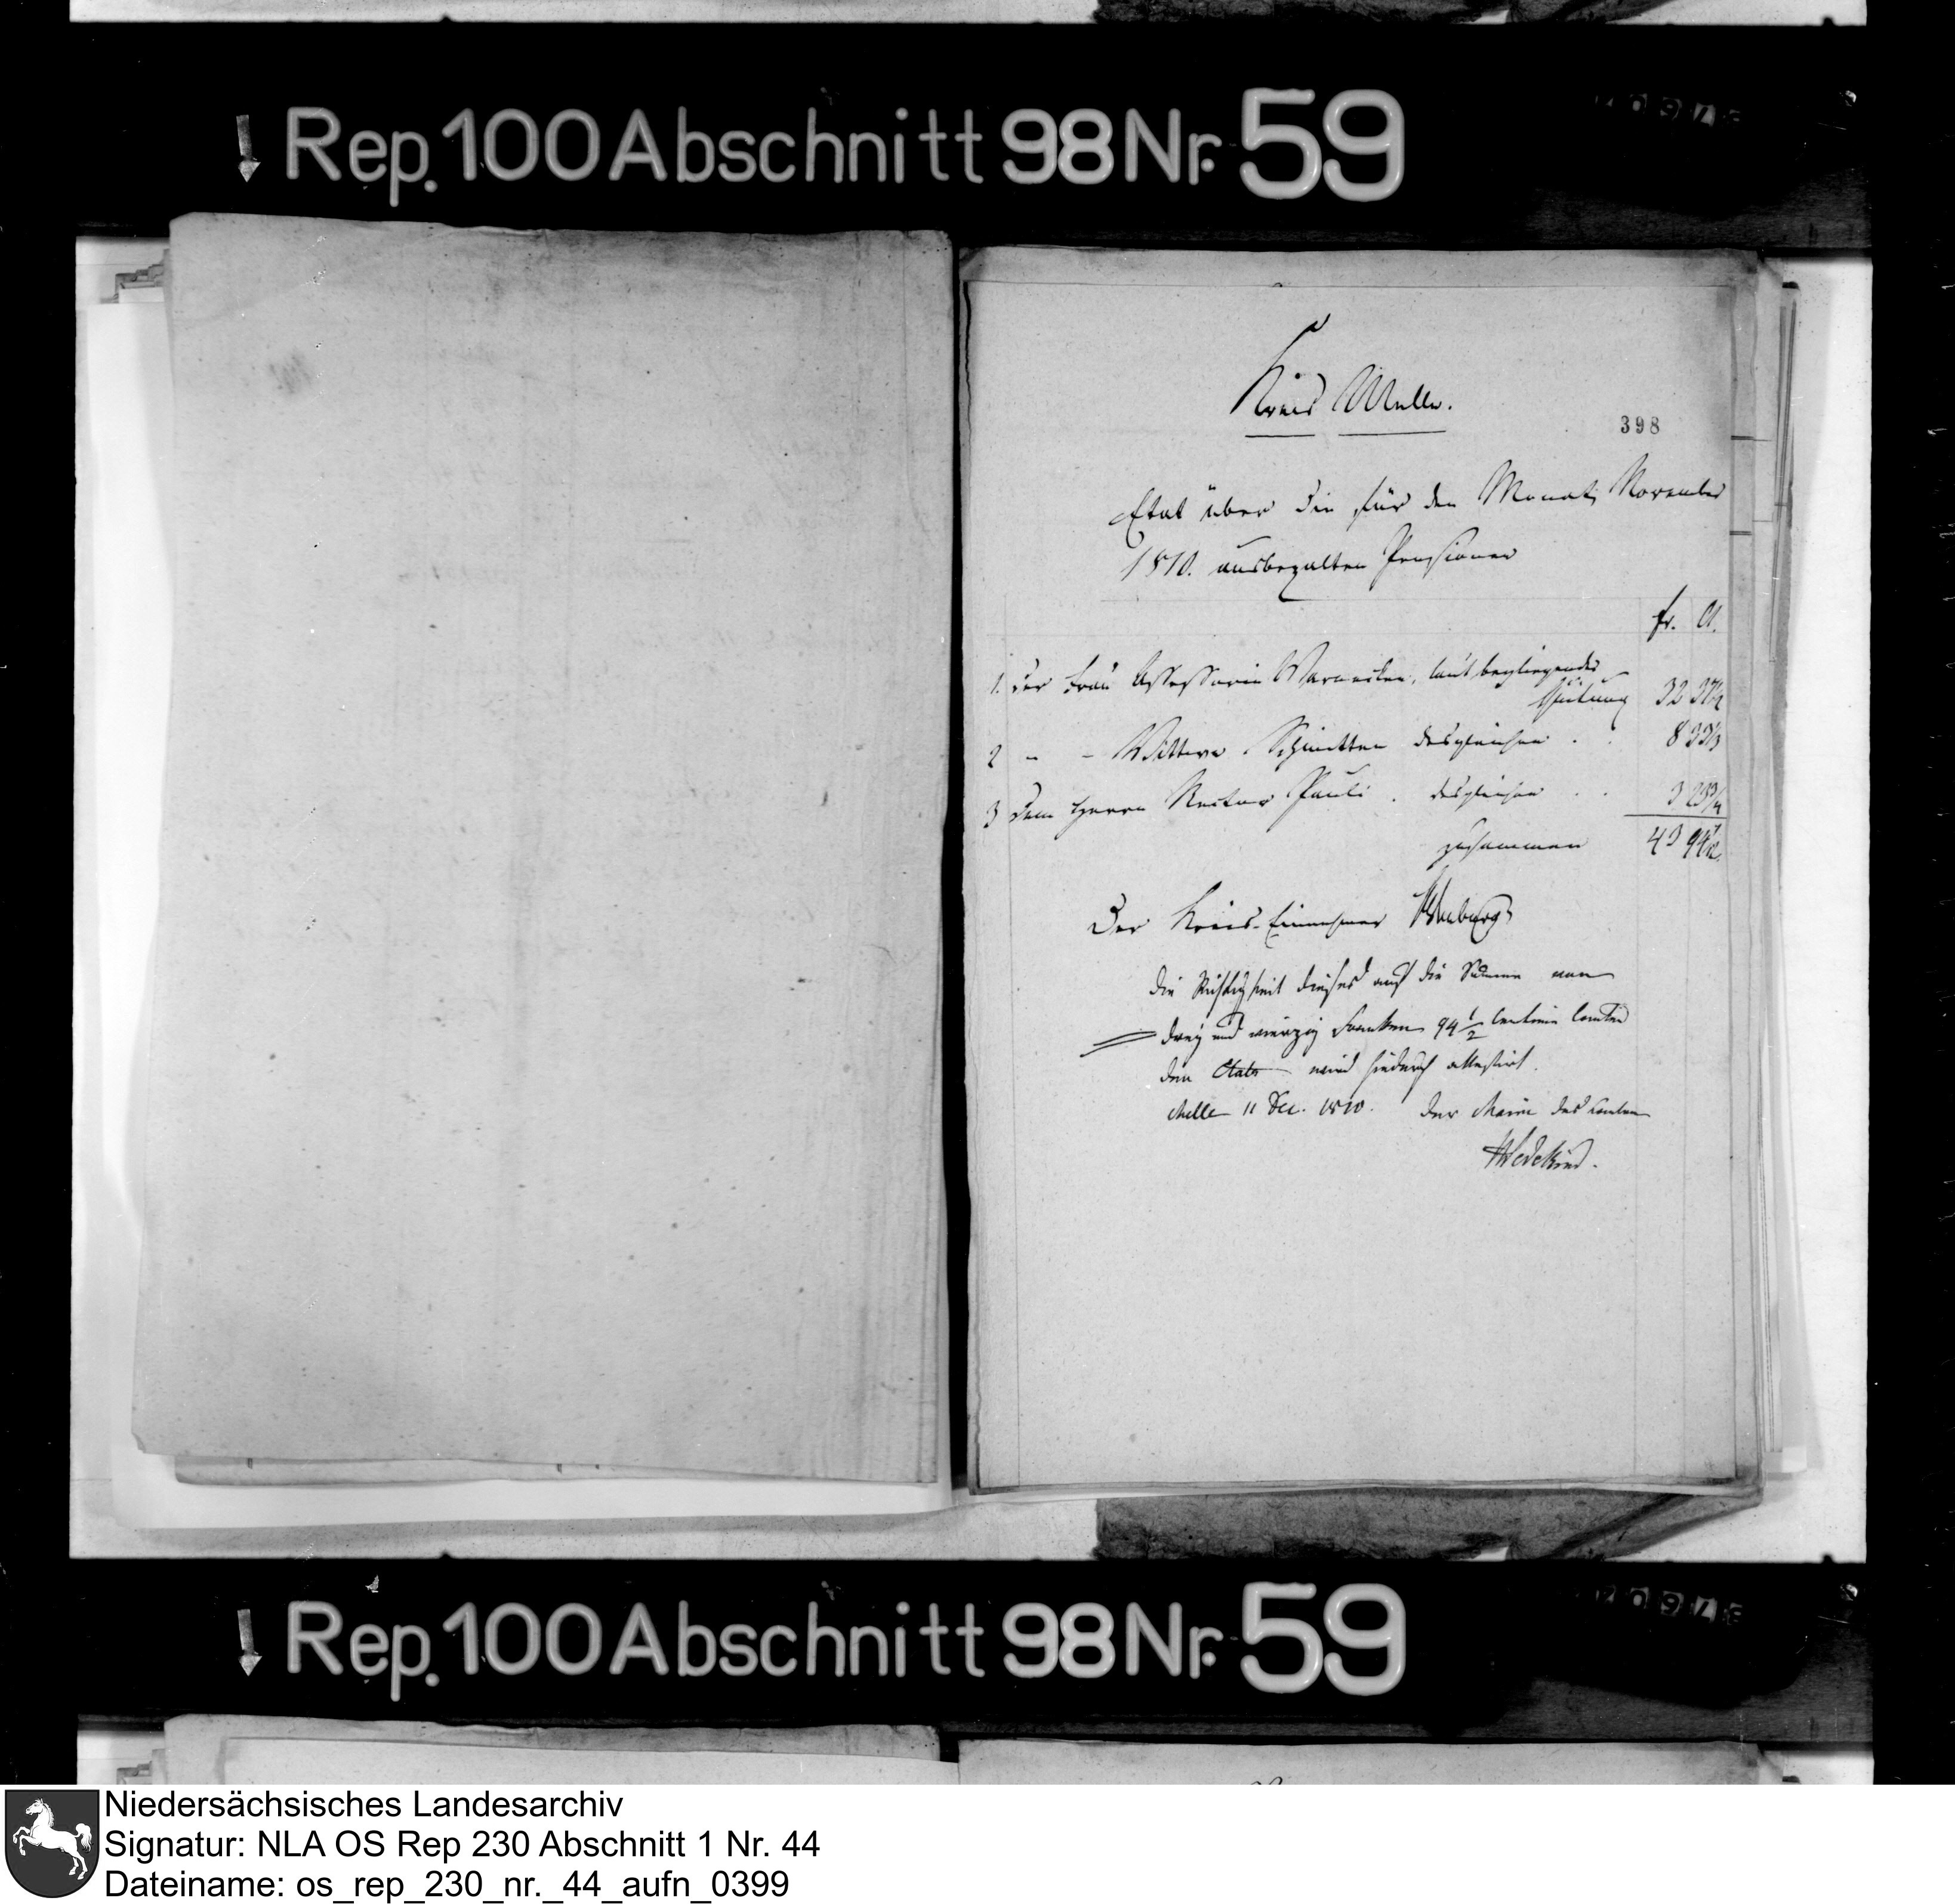 Rep. 100 Abschnitt 98 Nr. 59
Kreis Melle.
398
Etat über die für den Monat November
1810. ausbezalten Pensionen
fr. Ct.
1. der Frau Assessorin Warnecken, laut beyliegender
Quitung 32 37½
2 - - Wittwe Schmitten desgleichen . . 8 33⅓
3 Dem Herrn Rector Pauli . desgleichen . . 3 23¾
zusammen 43 94½
Der Kreis-Einnehmer
Die Richtigkeit dieses auf die Summe von
drey und vierzig Franken 94 ½ Centimen
den Etats wird hiedurch attestirt.
Melle 11 Dec. 1810. Der Maire des Canton
Wedekind.
Rep. 100 Abschnitt 98 Nr. 59
Niedersächsisches Landesarchiv
Signatur: NLA OS Rep 230 Abschnitt 1 Nr. 44
Dateiname: os_rep_230_nr._44_aufn_0399